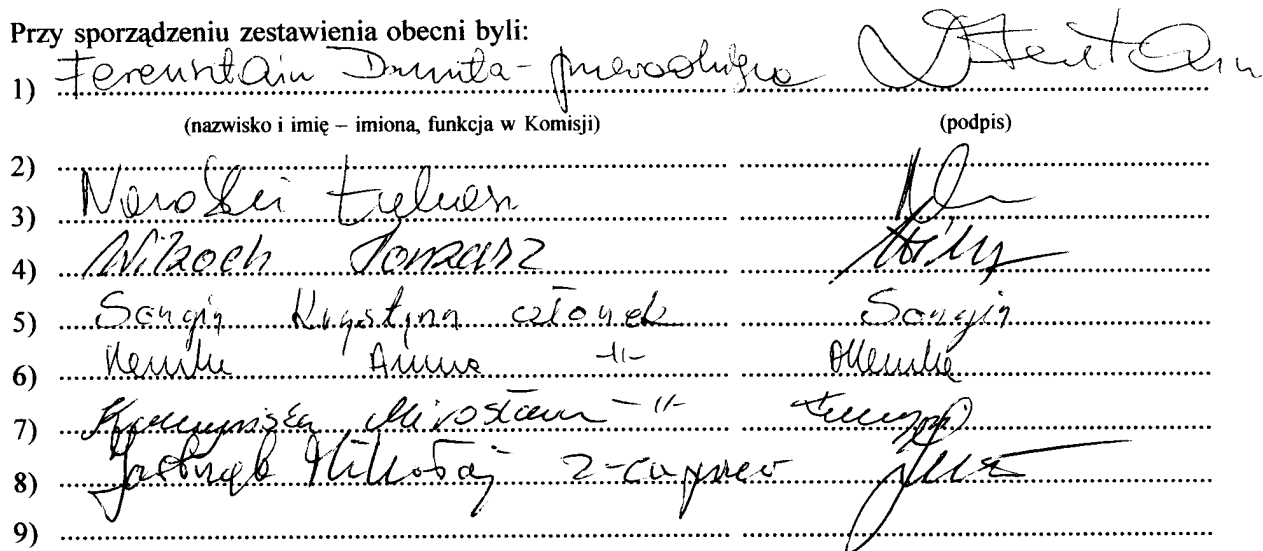 Przy sporządzeniu zestawienia obecni byli:
1) Ferensztain Danuta - przewodnicząca
(nazwisko i imię – imiona, funkcja w Komisji) (podpis)
2)
3) Narolski Łukasz
4) Wilkoch Tomasz
5) Sangin Krystyna członek Sangin
6) Anna -11-
7) Mirosława -11-
8) Jastrząb Mikołaj z-ca przew
9)